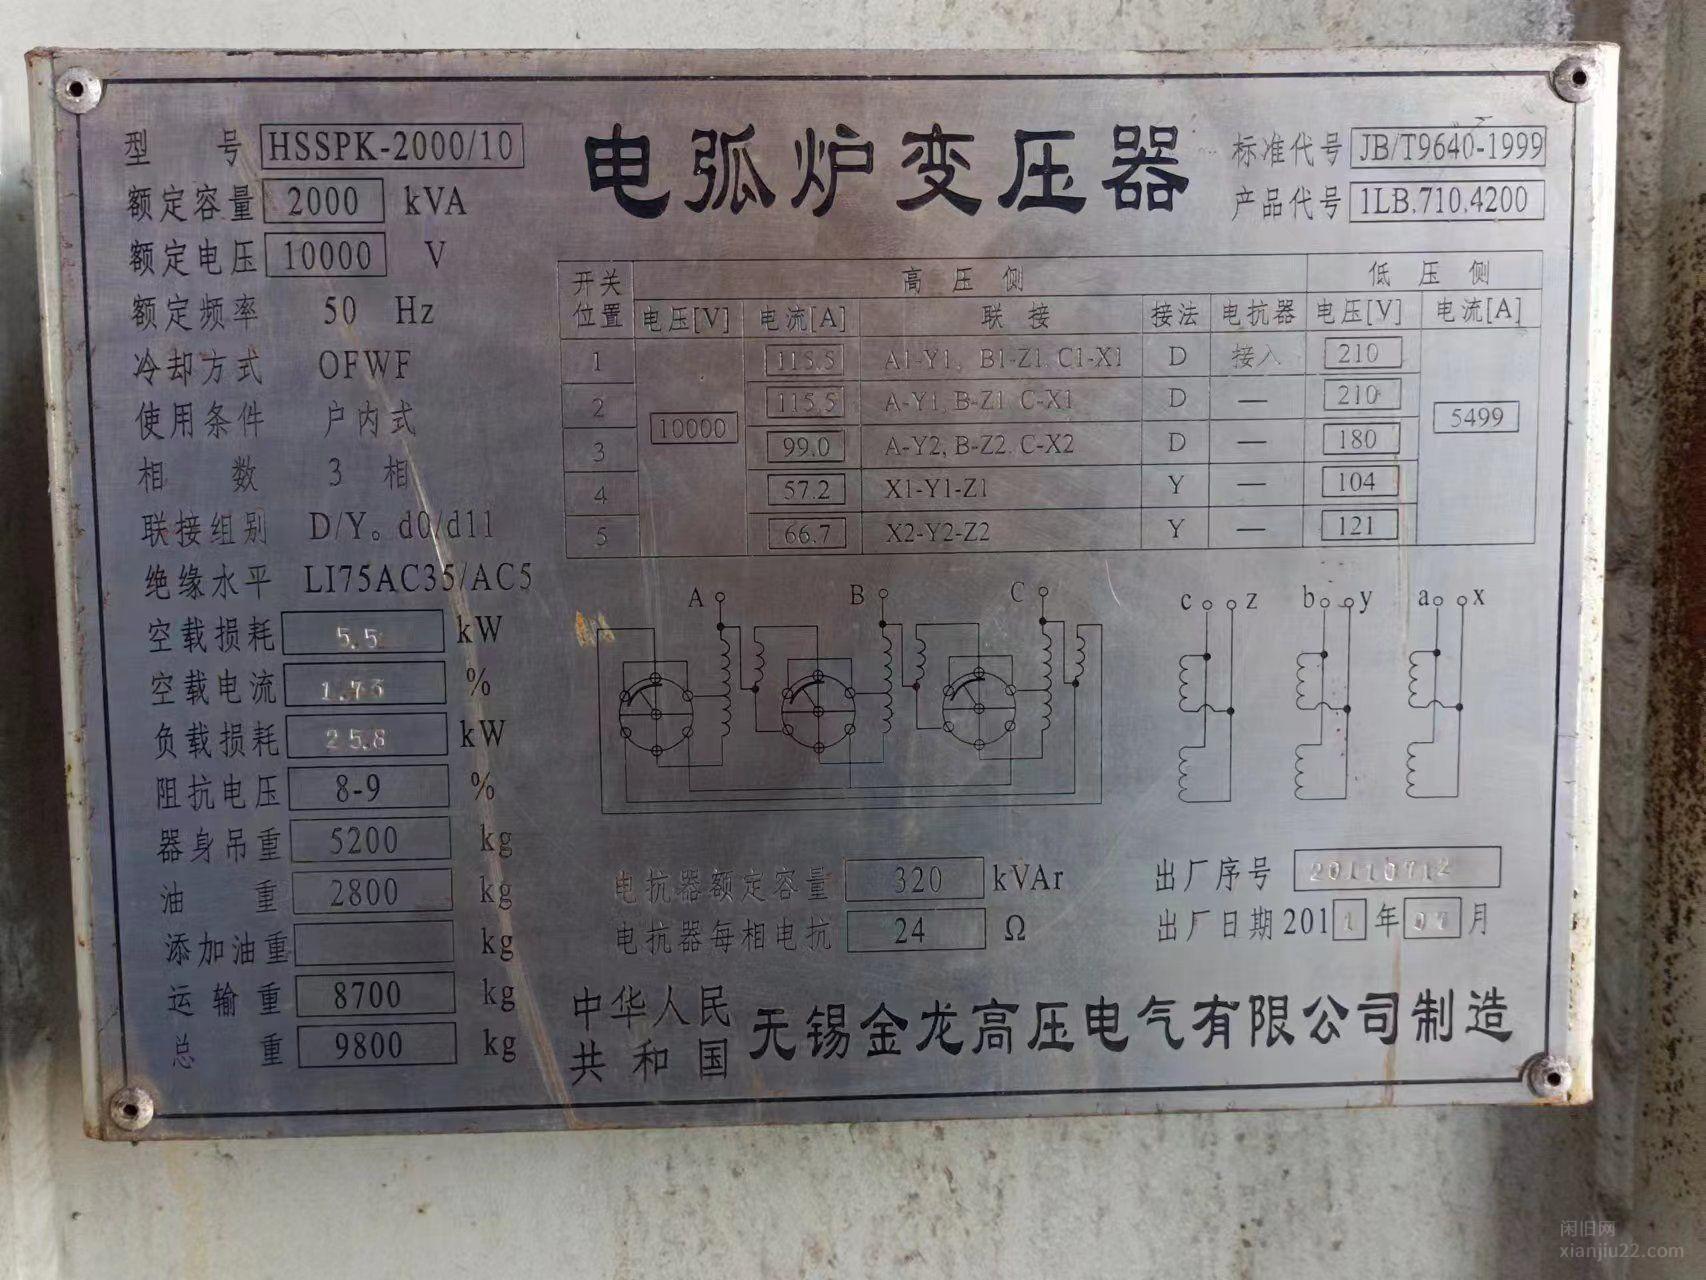 电弧炉变压器
型 号 HSSPK-2000/10
额定容量 2000 kVA
额定电压 10000 V
额定频率 50 Hz
冷却方式 OFWF
使用条件 户内式
相 数 3 相
联接组别 D/Y。d0/d11
绝缘水平 LI75AC35/AC5
空载损耗 5.5 kW
空载电流 1.73 %
负载损耗 25.8 kW
阻抗电压 8-9 %
器身吊重 5200 kg
油 重 2800 kg
添加油重 kg
运输重 8700 kg
总 重 9800 kg
标准代号 JB/T9640-1999
产品代号 1LB.710.4200
开关位置 高压侧 低压侧
电压[V] 电流[A] 联接 接法 电抗器 电压[V] 电流[A]
1 115.5 A1-Y1, B1-Z1. C1-X1 D 接入 210
2 115.5 A-Y1, B-Z1. C-X1 D — 210
10000 5499
3 99.0 A-Y2, B-Z2. C-X2 D — 180
4 57.2 X1-Y1-Z1 Y — 104
5 66.7 X2-Y2-Z2 Y — 121
A B C c z b y a x
电抗器额定容量 320 kVAr
电抗器每相电抗 24 Ω
出厂序号 20110712
出厂日期 2011年07月
中华人民共和国 无锡金龙高压电气有限公司制造
闲旧网
xianjiu22.com